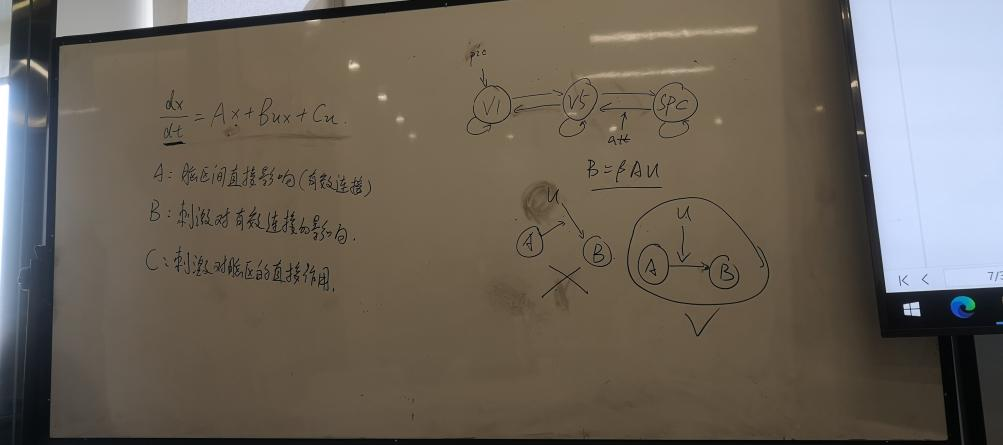 dx/dt = Ax + Bux + Cu.
A: 脑区间直接影响(有效连接)
B: 刺激对有效连接的影响.
C: 刺激对脑区的直接作用.
pic
V1 V5 SPC
att
B=βAU
u
A B
u
A B
7/3